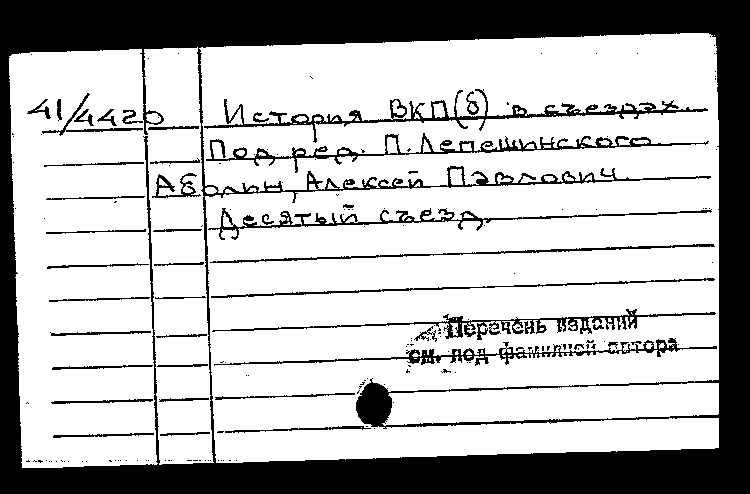 41/4420 История ВКП(б) в съездах.
Под ред. П. Лепешинского.
Аболин, Алексей Павлович.
Десятый съезд.
Перечень изданий
см. под фамилией автора